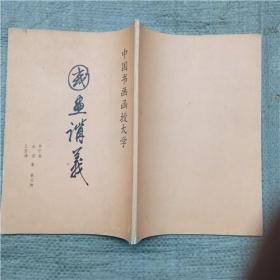 中国书画函授大学
国画讲義